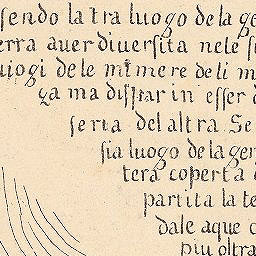 sendo la tra luogo de la ge
erra auer diuersita nele s
uiogi de le mimere de li m
ga ma dispar in esser
seria del altra. Se
sia luogo de la gen
tera coperta
partita la te
dale aque c
piu oltra